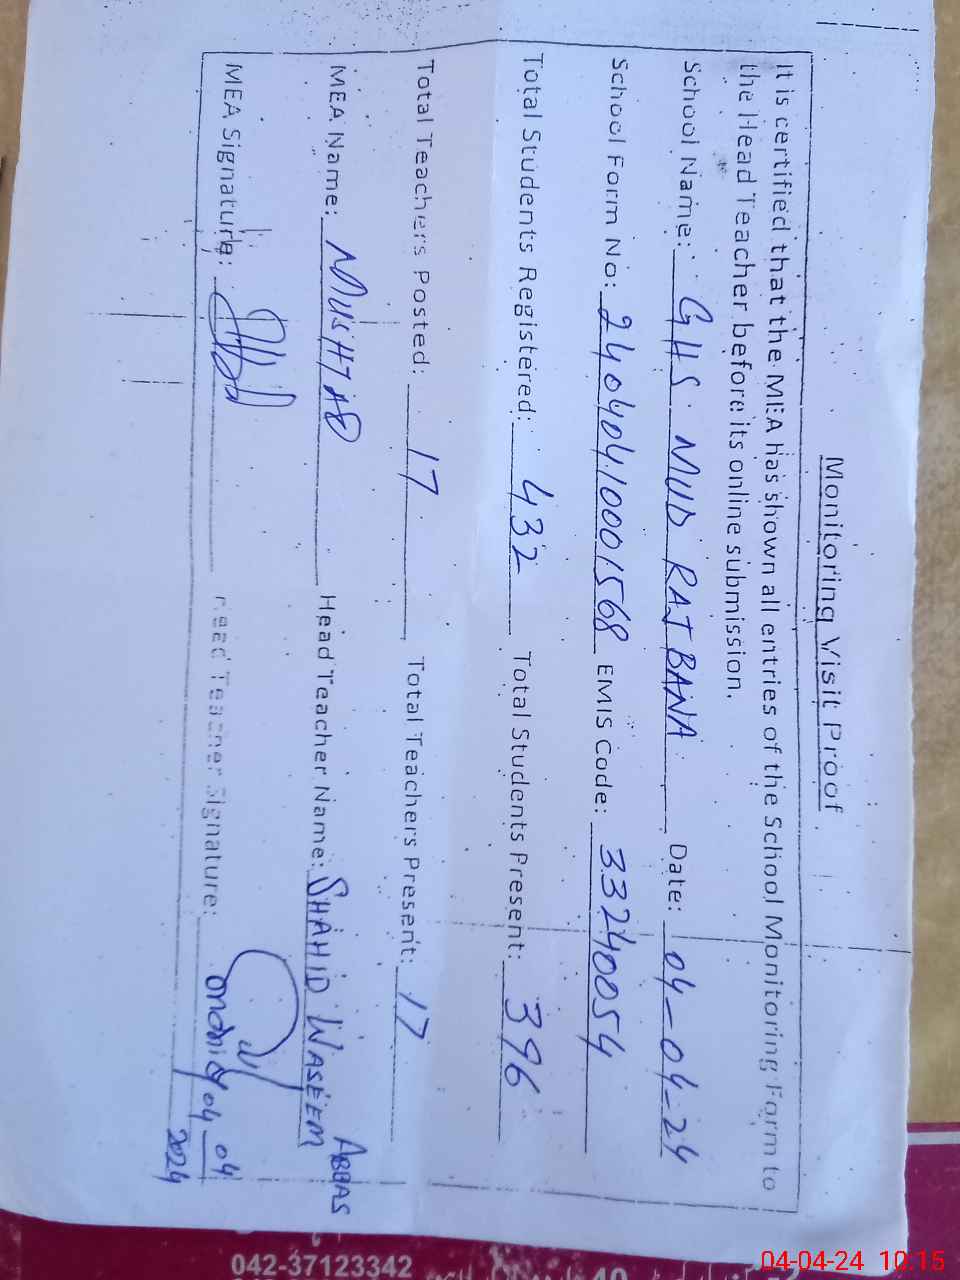 Monitoring Visit Proof
It is certified that the MEA has shown all entries of the School Monitoring Form to
the Head Teacher before its online submission.
School Name: GHS MUD RAJBANA Date: 04-04-24
School Form No: 24040410001568 EMIS Code: 33240054
Total Students Registered: 432 Total Students Present: 396
Total Teachers Posted: 17 Total Teachers Present: 17
MEA Name: MUSHTAQ Head Teacher Name: SHAHID WASEEM ABBAS
MEA Signature: Head Teacher Signature:
04-04
2024
042-37123342
04-04-24 10:15